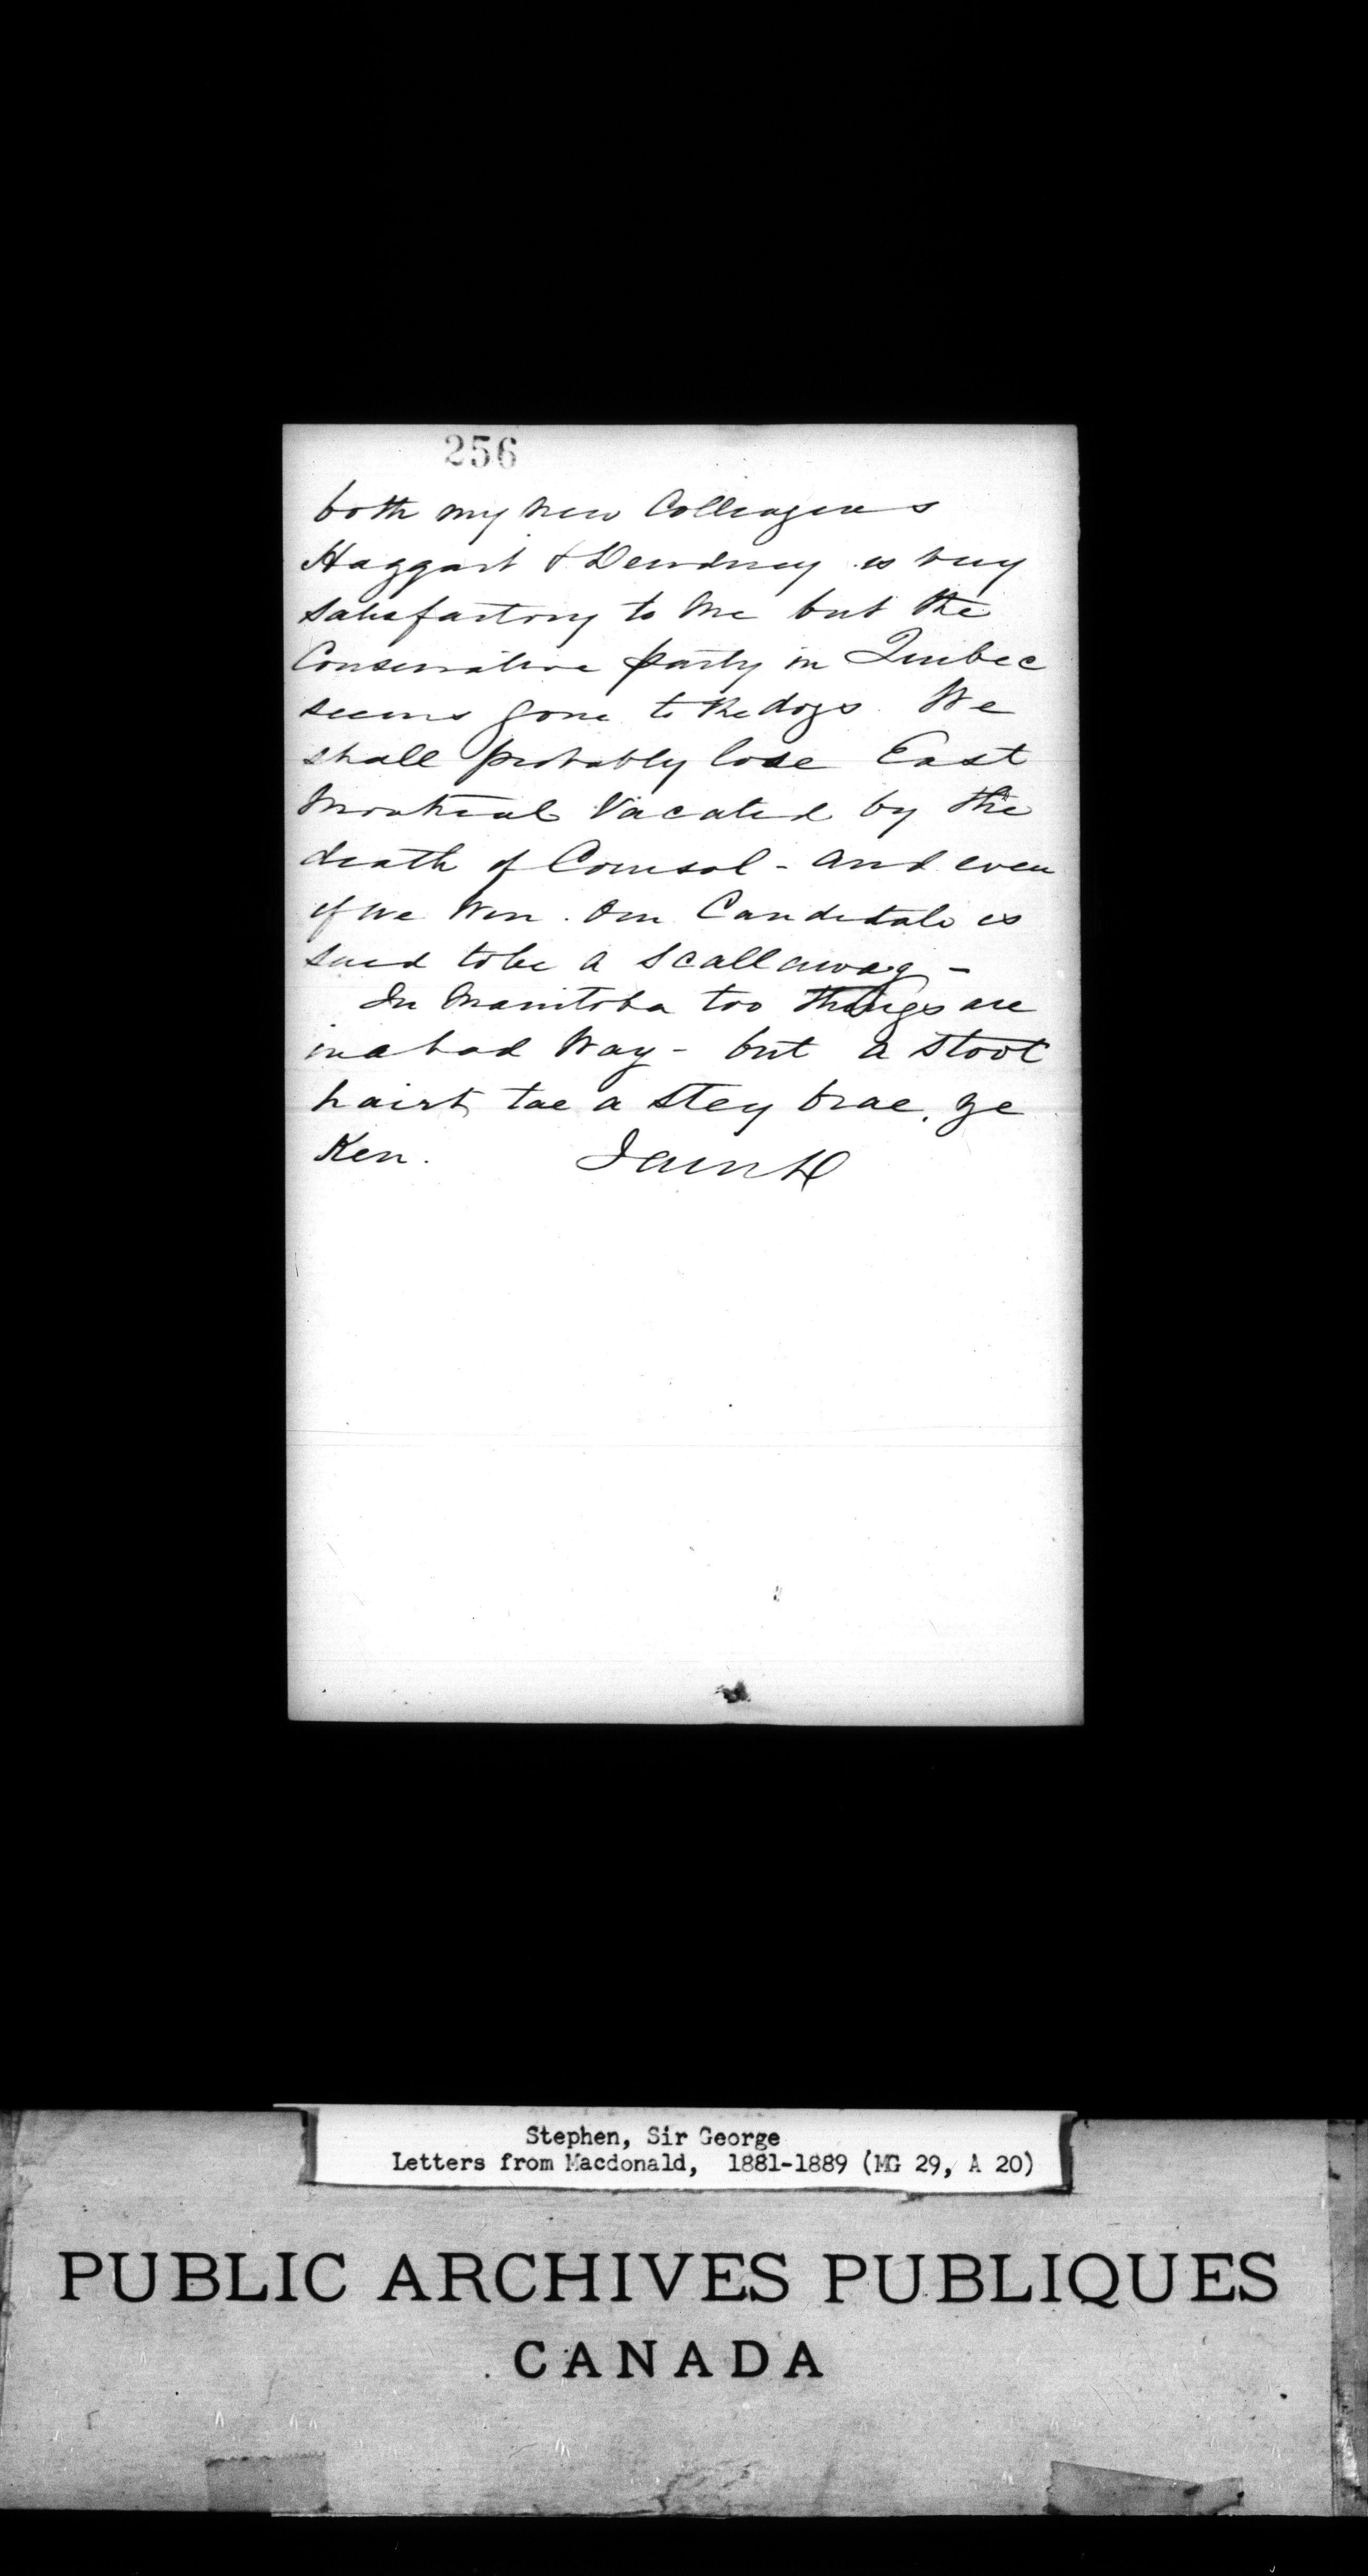 256
both my new Colleagues
Haggart & Dewdney is very
satisfactory to me but the
Conservative party in Quebec
seems gone to the dogs. We
shall probably lose East
Montreal Vacated by the
death of Coursol - and even
if we Win. Our Candidate is
said to be a Scallawag -
In Manitoba too things are
in a bad Way - but a stoot
hairt tae a stey brae, ye
Ken.
Stephen, Sir George
Letters from Macdonald, 1881-1889 (MG 29, A 20)
PUBLIC ARCHIVES PUBLIQUES
CANADA